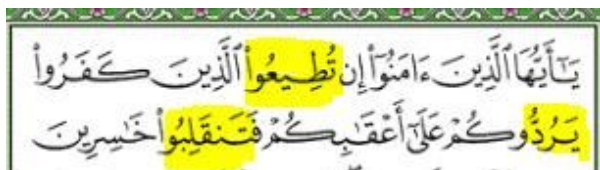 يَـٰٓأَيُّهَا ٱلَّذِينَ ءَامَنُوٓا۟ إِن تُطِيعُوا۟ ٱلَّذِينَ كَفَرُوا۟
يَرُدُّوكُمْ عَلَىٰٓ أَعْقَـٰبِكُمْ فَتَنقَلِبُوا۟ خَـٰسِرِينَ